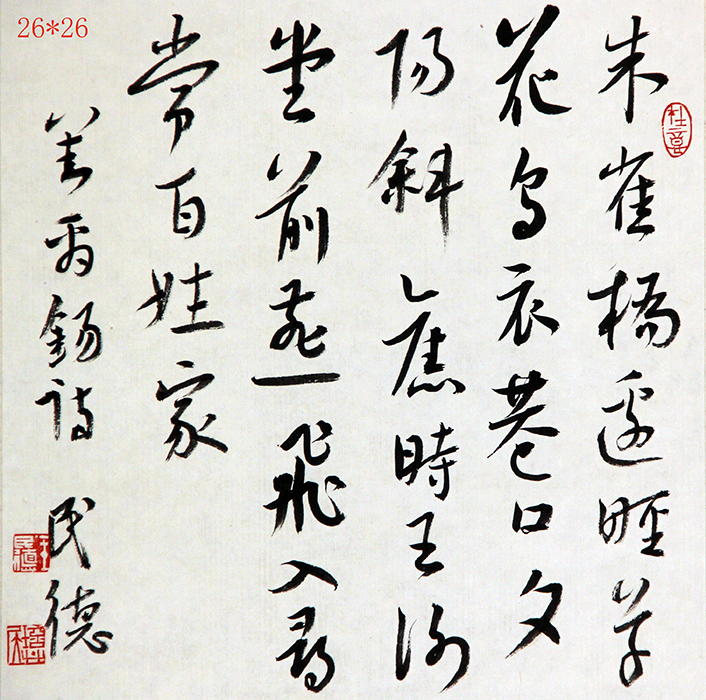 26*26
朱雀橋邊野草
花烏衣巷口夕
陽斜舊時王謝
堂前燕飛入尋
常百姓家
劉禹錫詩 民德